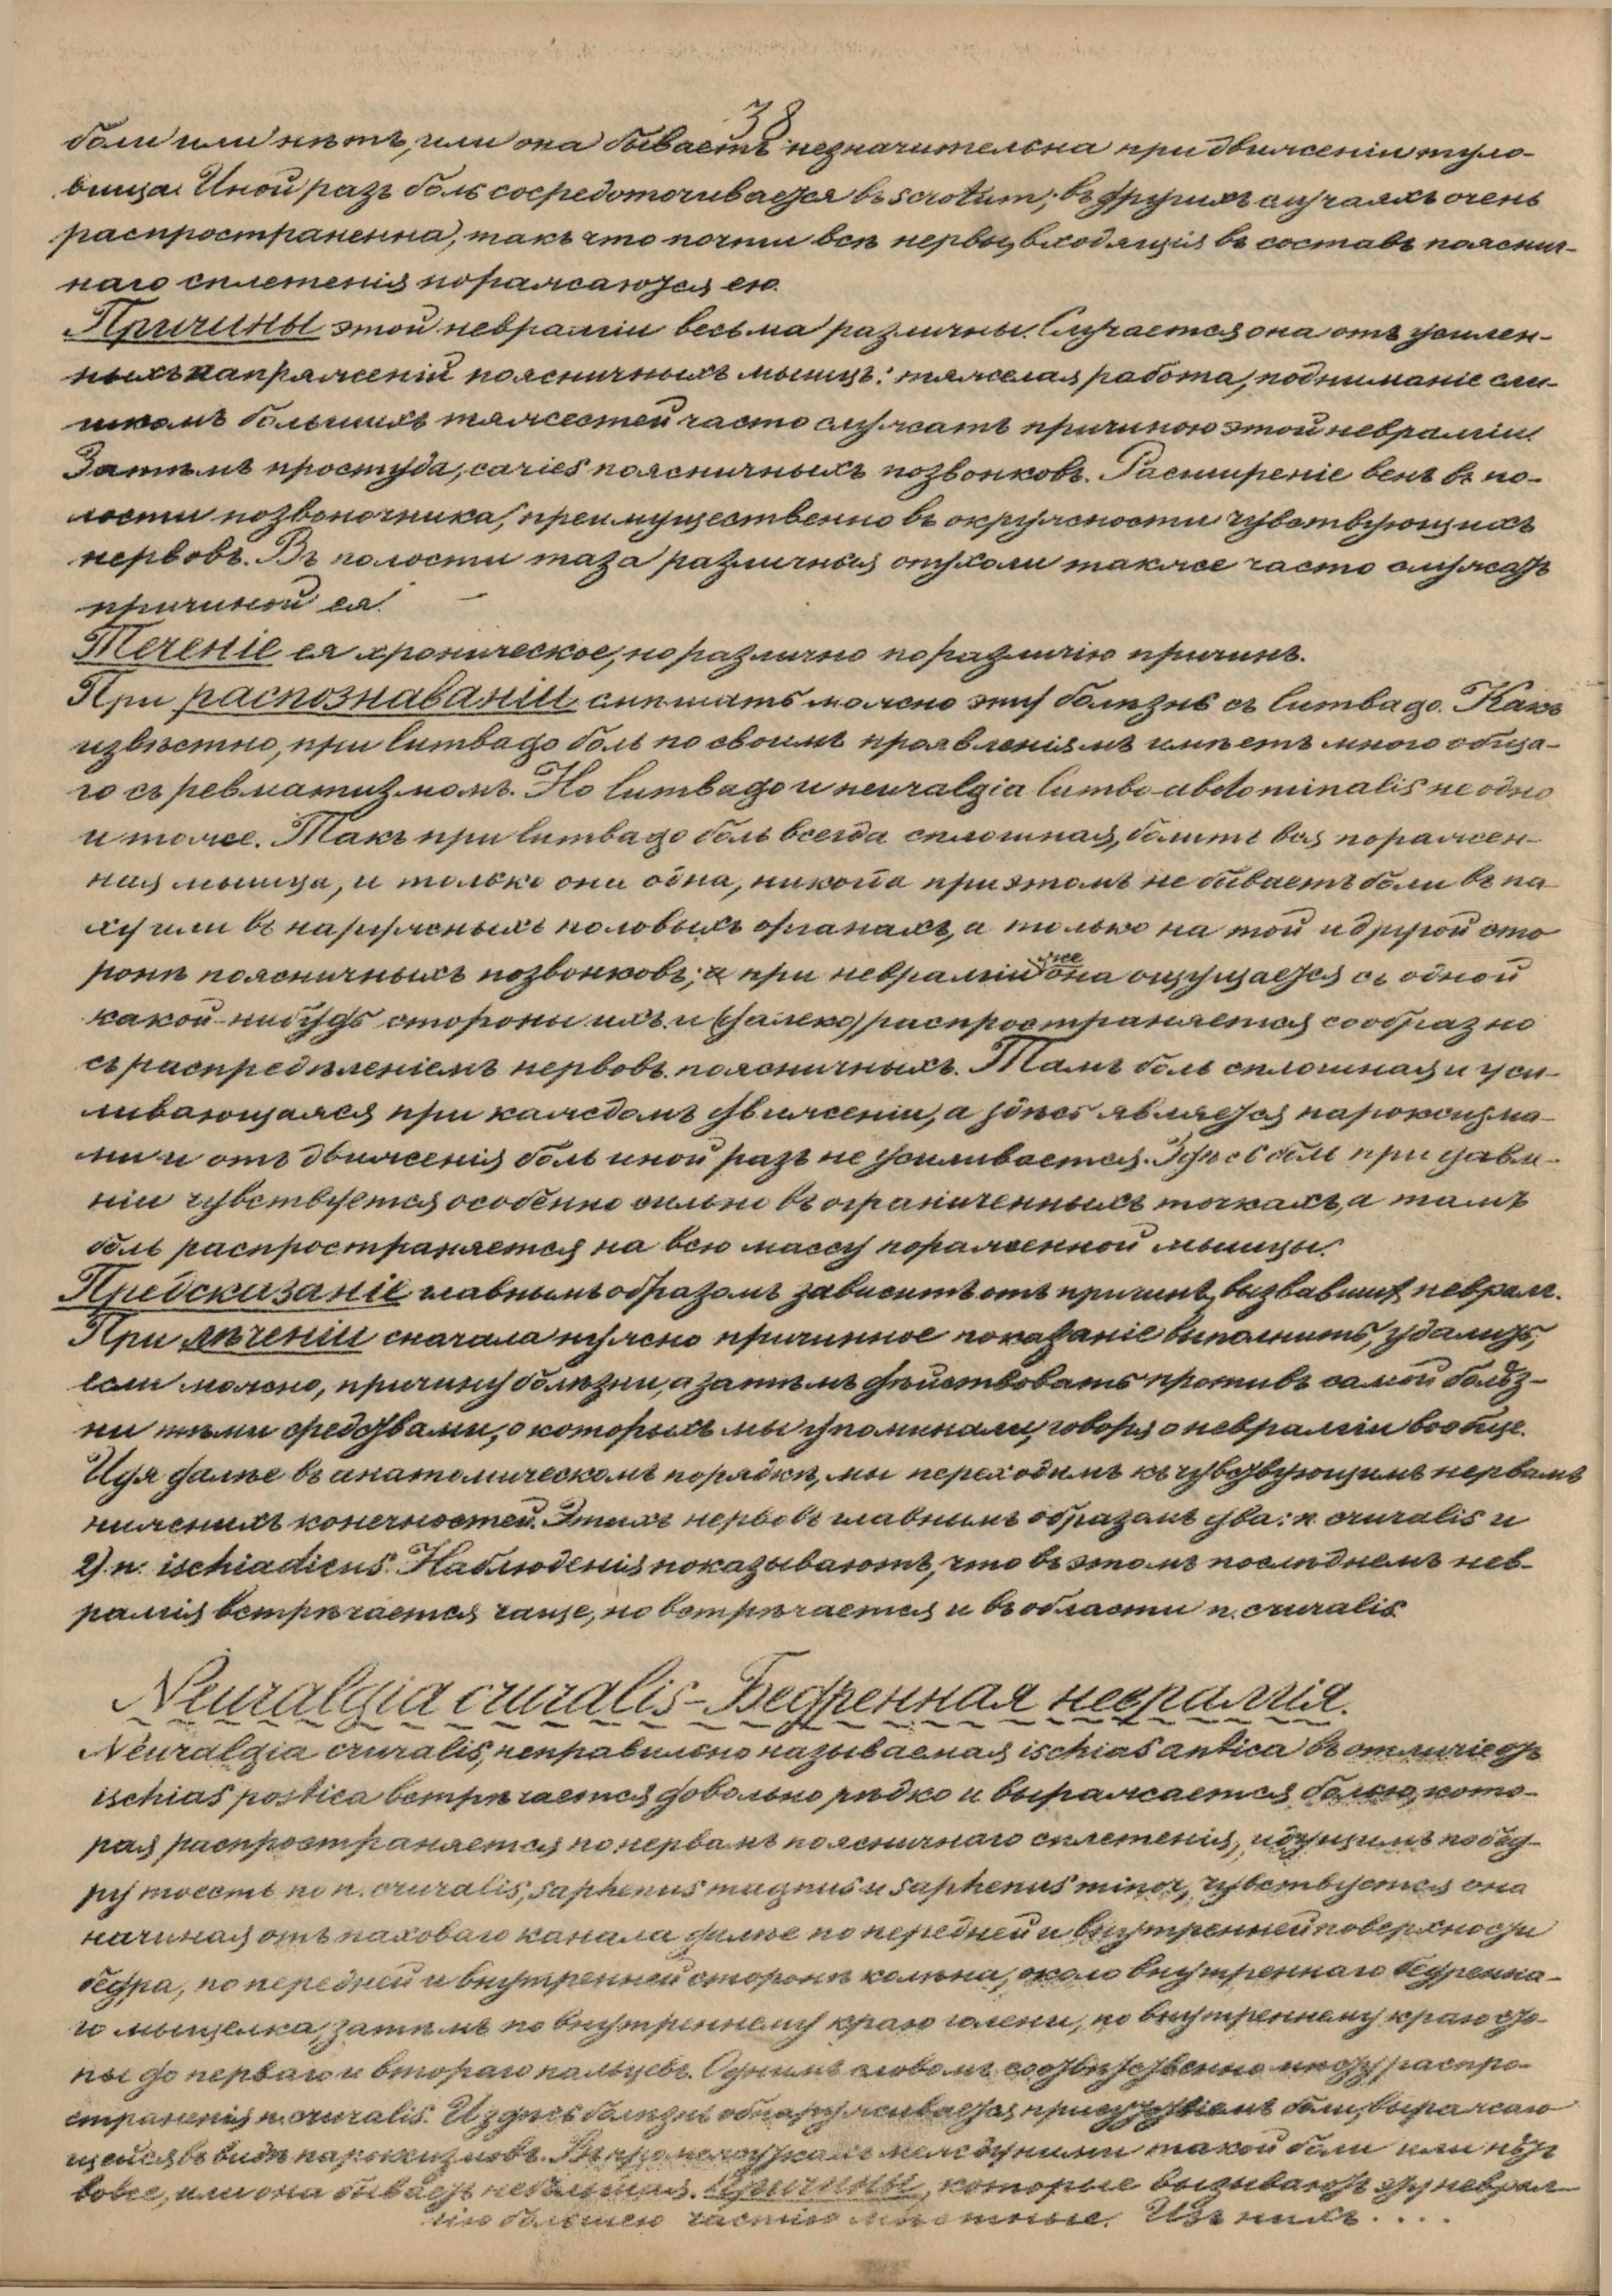 38
боли или нѣтъ, или она бываетъ незначительна при движеніи туло-
вища. Иной разъ боль сосредоточивается въ scrotum; въ другихъ случаяхъ очень
распространенна, такъ что почти всѣ нервы, входящія въ составъ пояснич-
наго сплетенія поражаются ею.
Причины этой невралгіи весьма различны. Случается она отъ усилен-
ныхъ напряженій поясничныхъ мышцъ: тяжелая работа, подниманіе сли-
шкомъ большихъ тяжестей часто служатъ причиною этой невралгіи.
Затѣмъ простуда, caries поясничныхъ позвонковъ. Расширеніе венъ въ по-
лости позвоночника, преимущественно въ окружности чувствующихъ
нервовъ. Въ полости таза различныя опухоли также часто служатъ
причиной ея.
Теченіе ея хроническое, но различно по различію причинъ.
При распознаваніи смѣшать можно эту болѣзнь съ lumbago. Какъ
извѣстно, при lumbago боль по своимъ проявленіямъ имѣетъ много обща-
го съ ревматизмомъ. Но lumbago и neuralgia lumbo-abdominalis не одно
и тоже. Такъ при lumbago боль всегда сплошная, болитъ вся поражен-
ная мышца, и только они одна, никогда при этомъ не бываетъ боли въ па-
ху или въ наружныхъ половыхъ органахъ, а только на той и другой сто
ронѣ поясничныхъ позвонковъ; а при невралгіи же она ощущается съ одной
какой-нибудь стороны ихъ и (далеко) распространяется сообразно
съ распредѣленіемъ нервовъ поясничныхъ. Тамъ боль сплошная и уси-
ливающаяся при каждомъ движеніи, а здѣсь является пароксизма-
ми и отъ движенія боль иной разъ не усиливается. Здѣсь боль при давле-
ніи чувствуется особенно сильно въ ограниченныхъ точкахъ, а тамъ
боль распространяется на всю массу пораженной мышцы.
Предсказаніе главнымъ образомъ зависитъ отъ причинъ, вызвавшихъ невралг.
При лѣченіи сначала нужно причинное показаніе выполнить, удалить,
если можно, причину болѣзни, а затѣмъ дѣйствовать противъ самой болѣз-
ни тѣми средствами, о которыхъ мы упоминали, говоря о невралгіи вообще.
Идя далѣе въ анатомическомъ порядкѣ, мы переходимъ къ чувствующимъ нервамъ
нижнихъ конечностей. Этихъ нервовъ главнымъ образомъ два: n. cruralis и
2). n. ischiadicus. Наблюденія показываютъ, что въ этомъ послѣднемъ нев-
ралгія встрѣчается чаще, но встрѣчается и въ области n. cruralis.
Neuralgia cruralis – Бедренная невралгія.
Neuralgia cruralis, неправильно называемая ischias antica въ отличіе отъ
ischias postica встрѣчается довольно рѣдко и выражается болью, кото-
рая распространяется по нервамъ поясничнаго сплетенія, идущимъ по бед-
ру тоесть по n. cruralis, saphenus magnus и saphenus minor, чувствуется она
начиная отъ паховаго канала далѣе по передней и внутренней поверхности
бедра, по передней и внутренней сторонѣ колѣна, около внутренняго бедренна-
го мыщелка, затѣмъ по внутреннему краю голени, по внутреннему краю сто-
пы до перваго и втораго пальцевъ. Однимъ словомъ соотвѣтственно мѣсту распро-
страненія n. cruralis. И здѣсь болѣзнь обнаруживается присутствіемъ боли, выражаю
щейся въ видѣ пароксизмовъ. Въ промежуткахъ между ними такой боли или нѣтъ
вовсе, или она бываетъ небольшая. Причины, которые вызываютъ эту неврал-
гію большею частію мѣстные. Изъ нихъ....